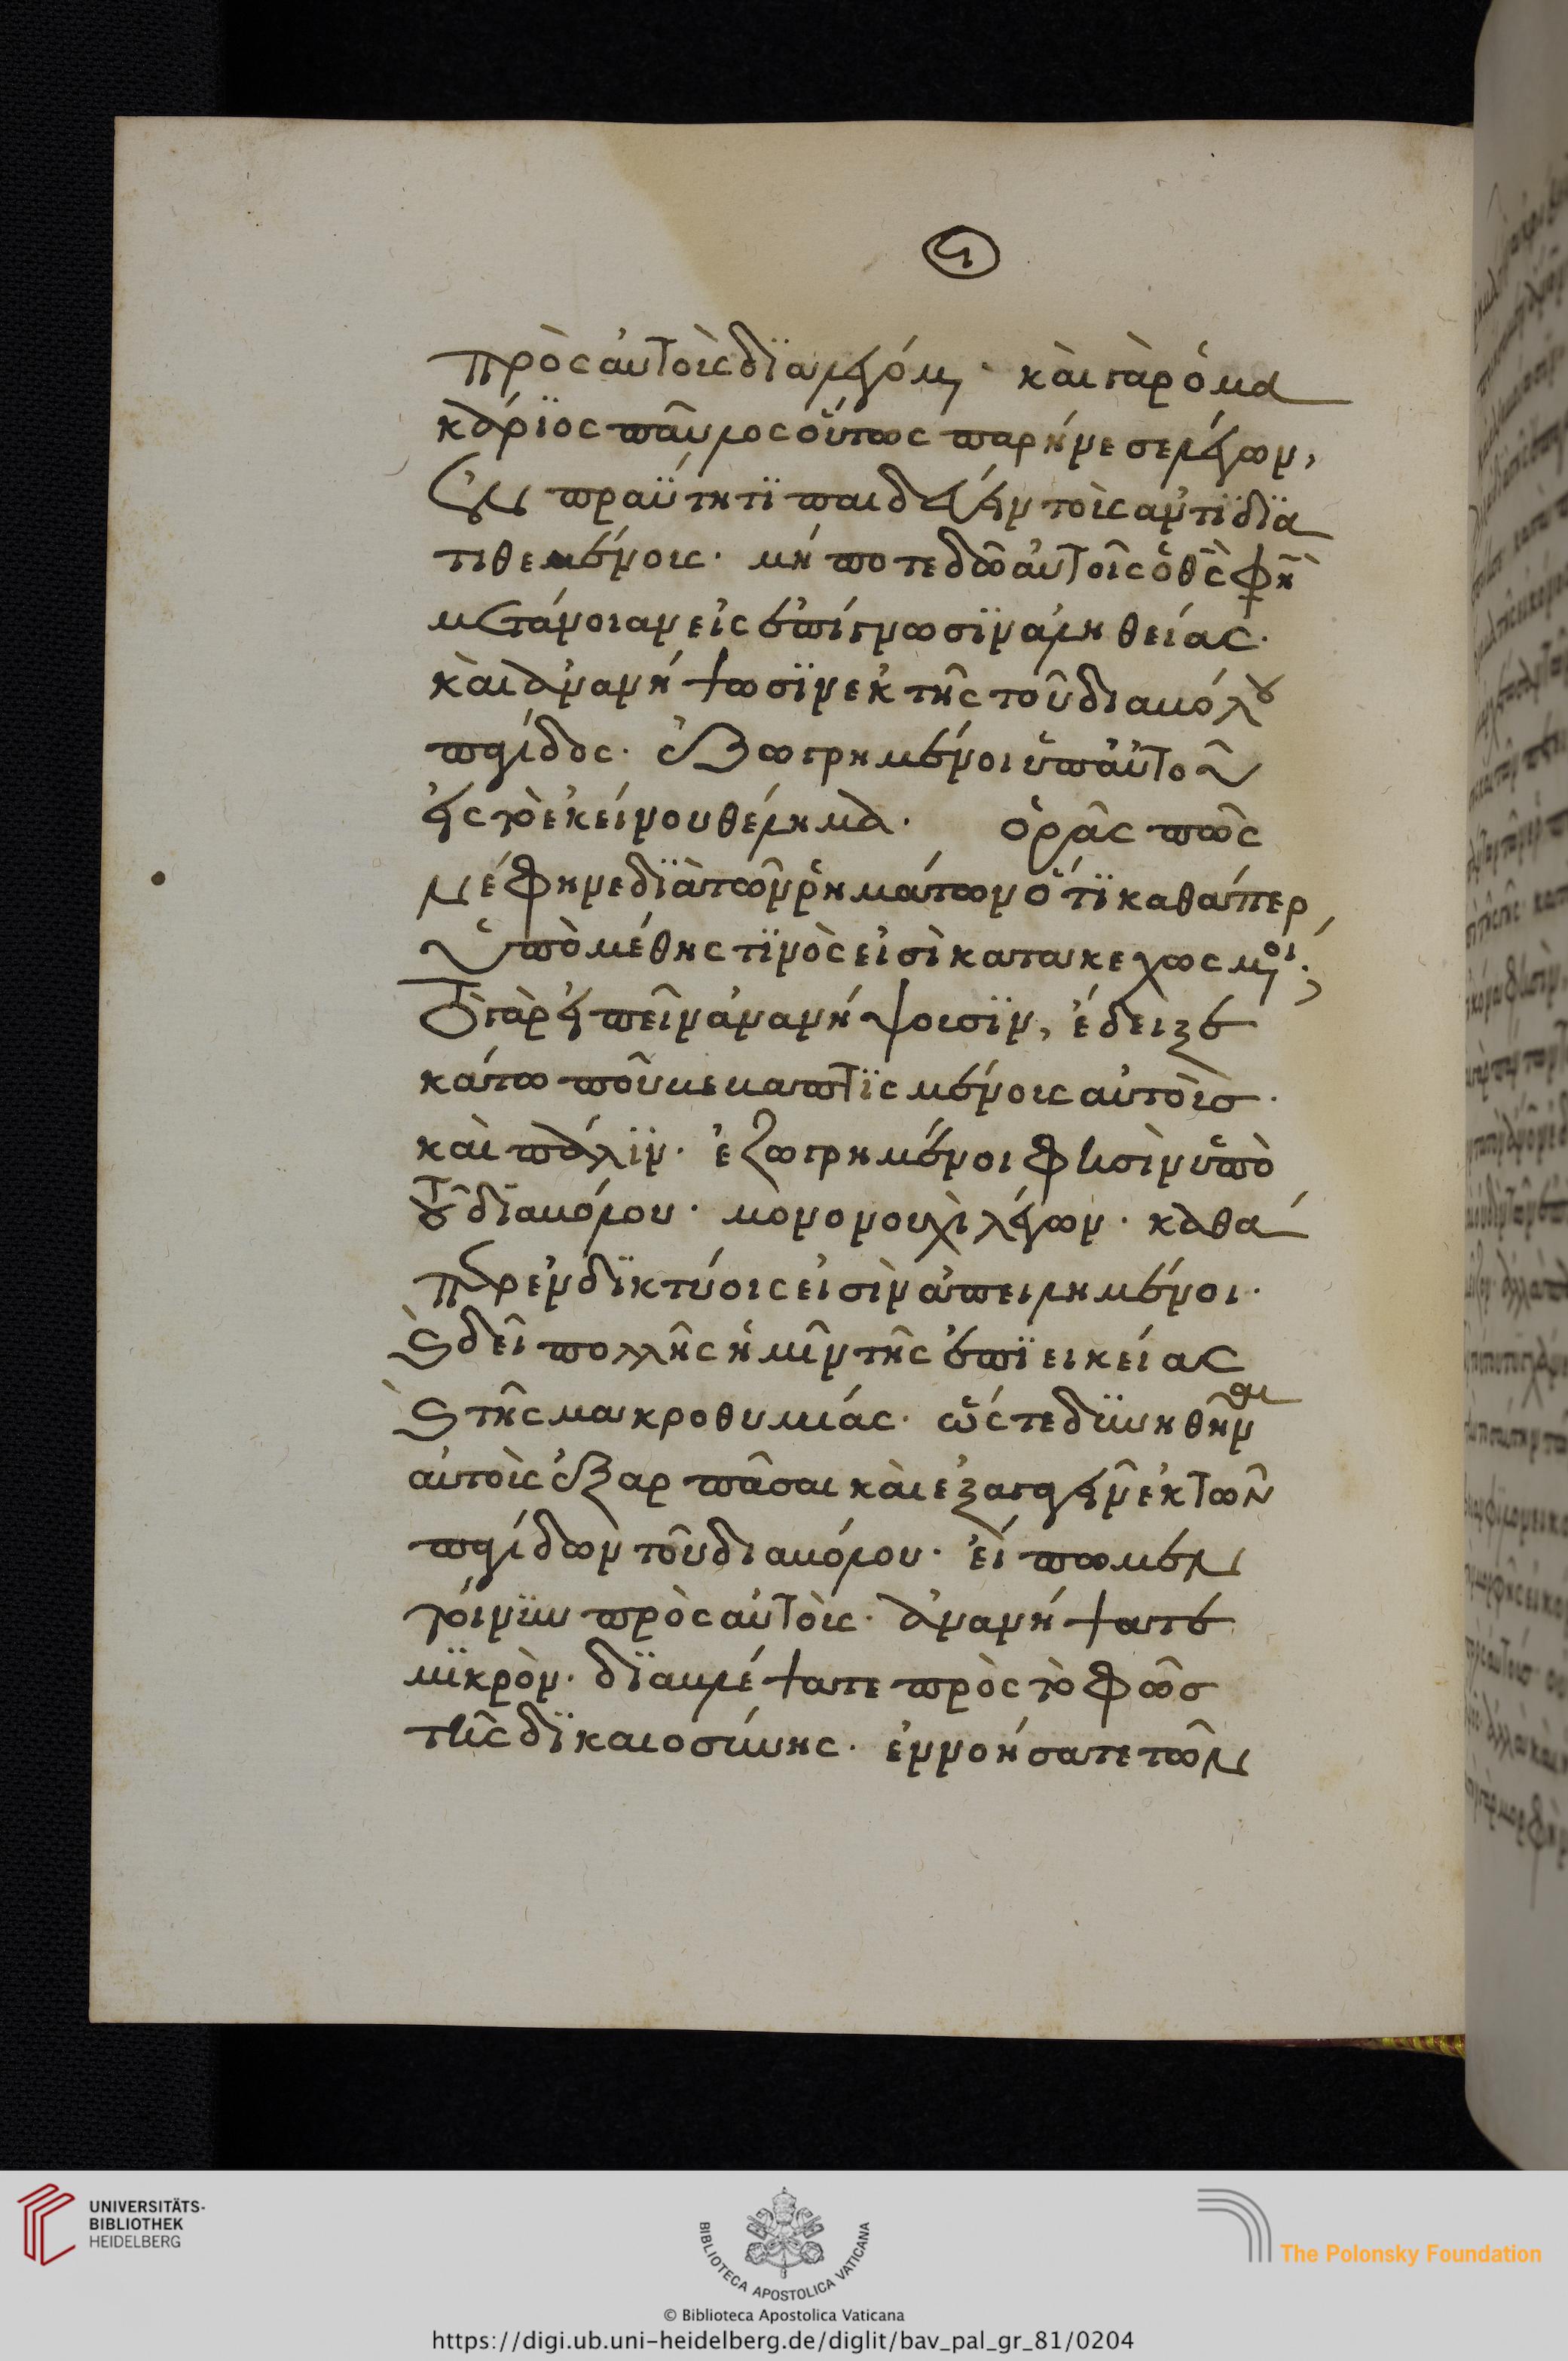 ϛ
πρὸς αὐτοὺς διαλεγόμ. καὶ γὰρ ὁ μα
κάριος παῦλος οὕτως παρήνεσε λέγων,
ἐν πραΰτητι παιδεύειν τοὺς ἀντιδια
τιθεμένους. μήποτε δῶ αὐτοῖς ὁ θς φη
μετάνοιαν εἰς ἐπίγνωσιν ἀληθείας.
καὶ ἀνανήψωσιν ἐκ τῆς τοῦ διαβόλου
παγίδος. ἐζωγρημένοι ὑπ' αὐτοῦ
εἰς τὸ ἐκείνου θέλημα. ὁρᾶς πῶς
ἐνέφηνε διὰ τῶν ῥημάτων ὅτι καθάπερ
ὑπὸ μέθης τινὸς εἰσὶ κατακεχωσμένοι.
τὸ γὰρ εἰπεῖν ἀνανήψουσιν, ἔδειξε
κάτω που βεβαπτισμένους αὐτοὺς.
καὶ πάλιν. ἐζωγρημένοι φησὶν ὑπὸ
τοῦ διαβόλου. μονονουχὶ λέγων. καθά
περ ἐν δικτύοις εἰσὶν ἀπειλημένοι.
καὶ δεῖ πολλῆς ἡμῖν τῆς ἐπιεικείας
καὶ τῆς μακροθυμίας. ὥστε δυνηθῆναι
αὐτοὺς ἐξαρπᾶσαι καὶ ἐξαγαγεῖν ἐκ τῶν
παγίδων τοῦ διαβόλου. εἴπωμεν
τοίνυν πρὸς αὐτοὺς. ἀνανήψατε
μικρὸν. διαβλέψατε πρὸς τὸ φῶς
τῆς δικαιοσύνης. ἐννοήσατε τῶν
UNIVERSITÄTS-
BIBLIOTHEK
HEIDELBERG
BIBLIOTECA APOSTOLICA VATICANA
The Polonsky Foundation
© Biblioteca Apostolica Vaticana
https://digi.ub.uni-heidelberg.de/diglit/bav_pal_gr_81/0204